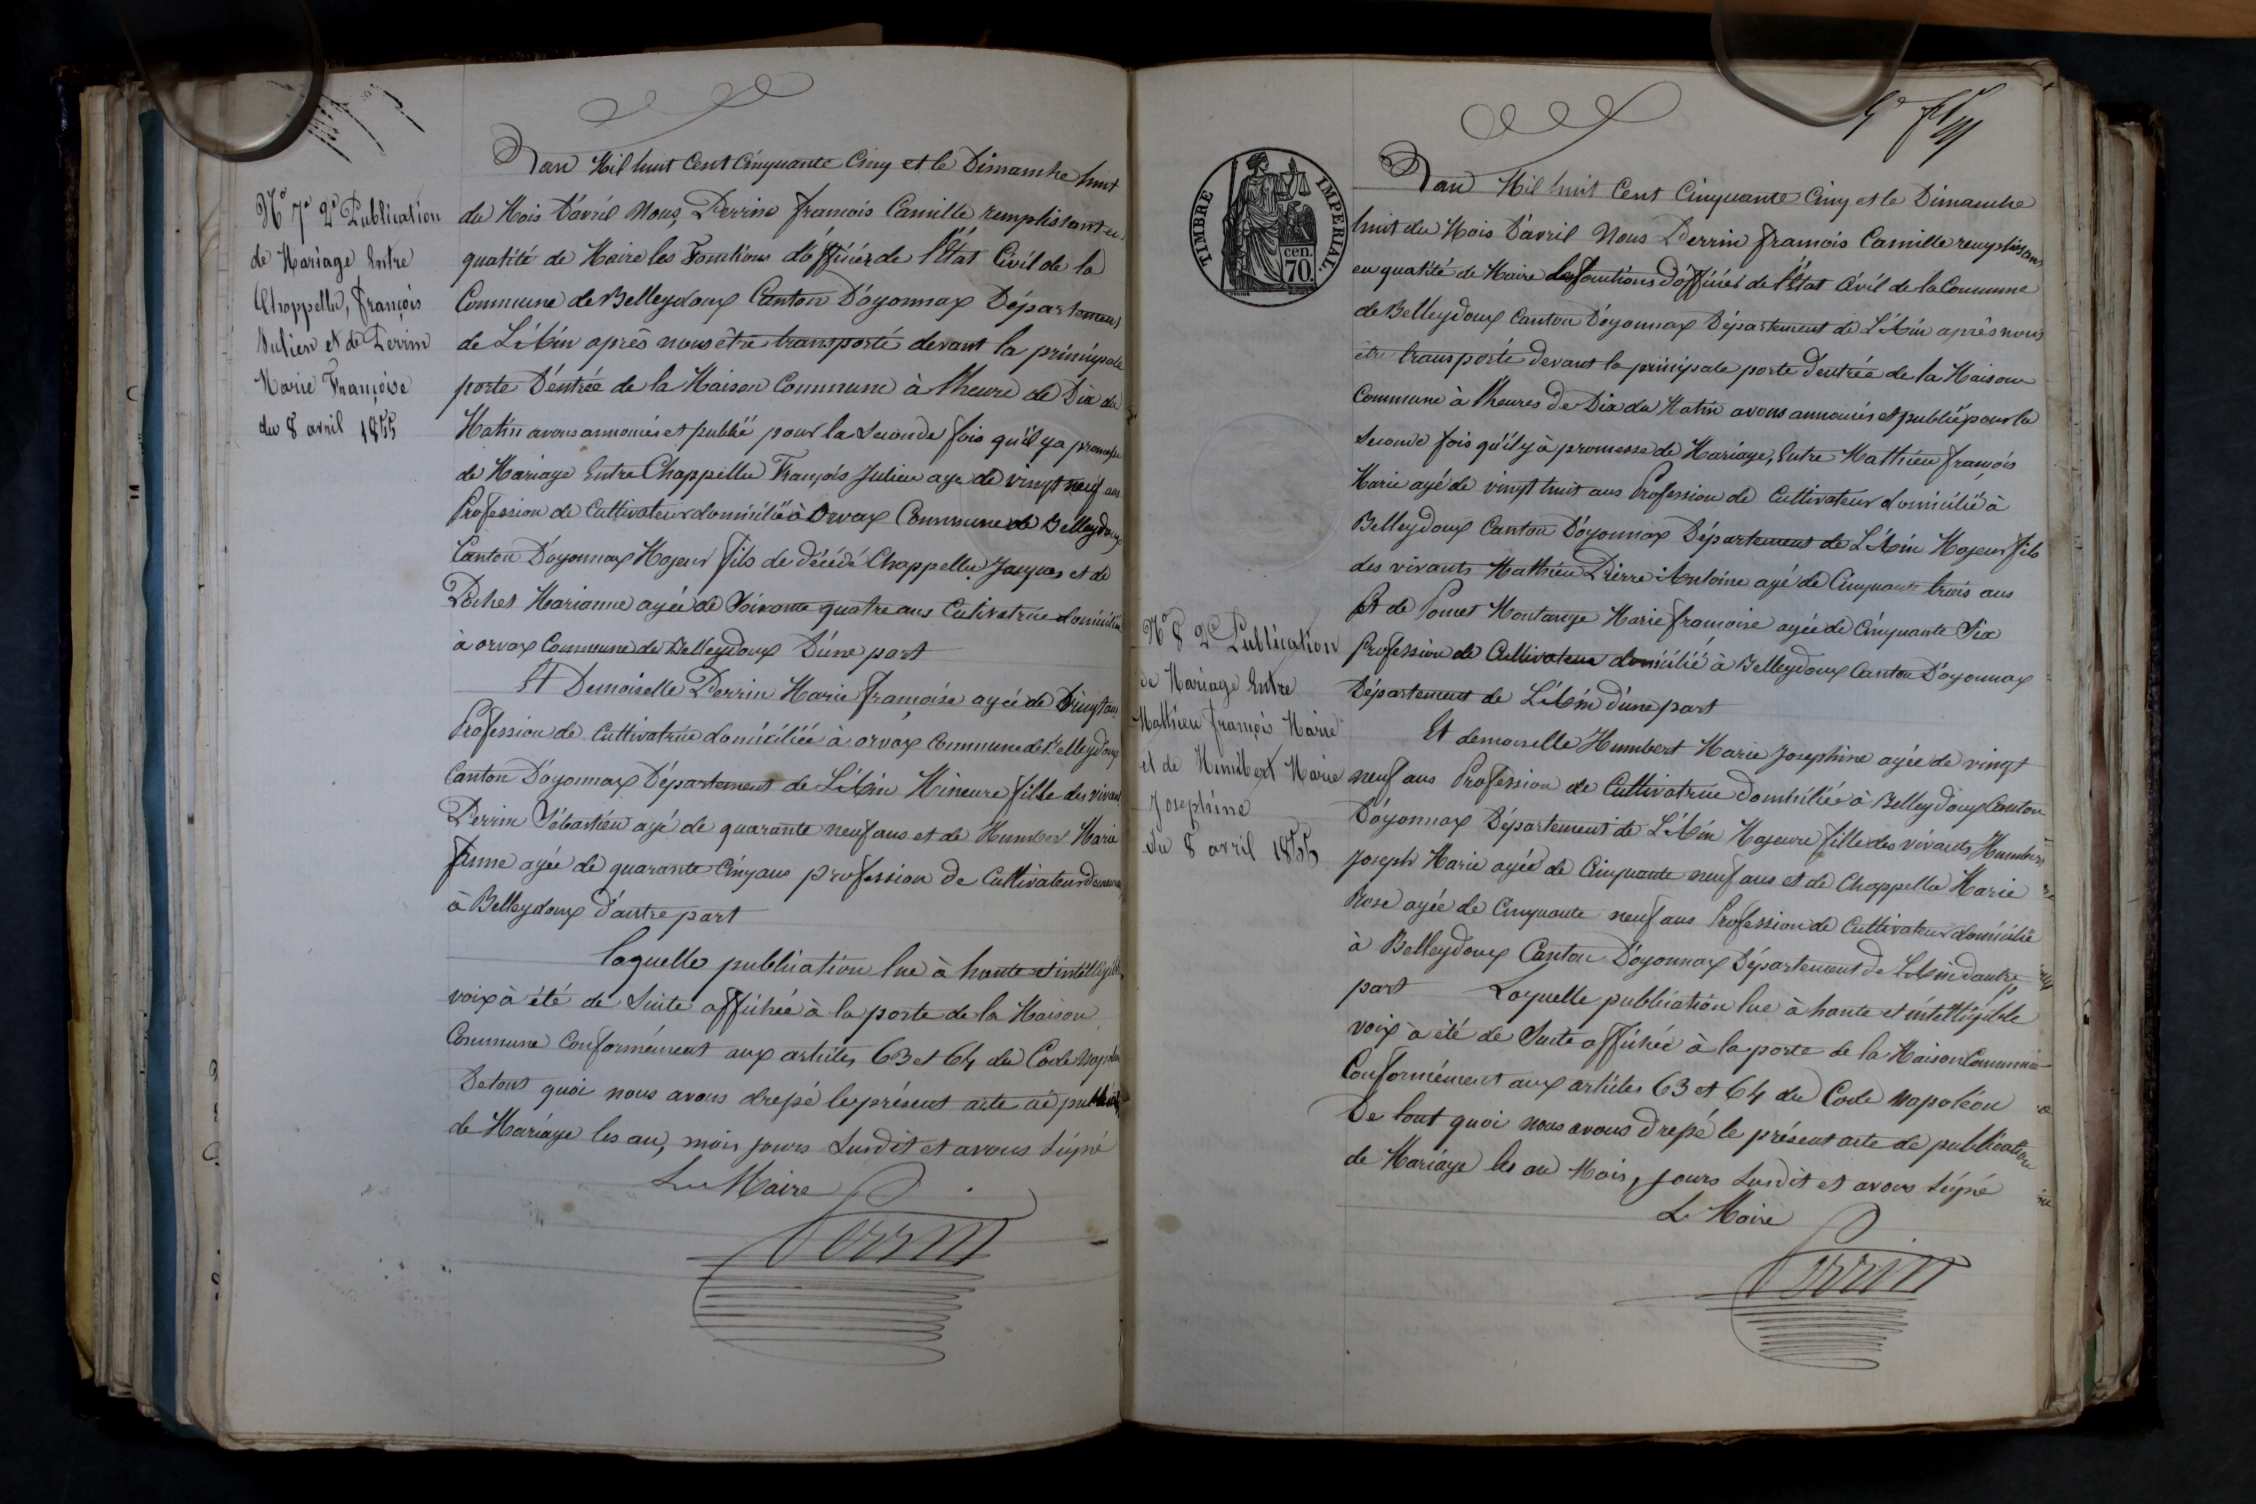 N° 7e 2e Publication
de Mariage Entre
Chappellu, François
Julien et de Perrin
Marie Françoise
du 8 avril 1855
L'an Mil huit Cent Cinquante Cinq et le Dimanche huit
du Mois D'avril Nous, Perrin francois Camille remplissant en
qualité de Maire les Fonctions d'officier de l'État Civil de la
Commune de Belleydoux Canton D'oyonnax Département
de L'Ain après nous être transporté devant la principale
porte D'éntrée de la Maison Commune à l'heure de Dix du
Matin avons annoncés et publié pour la Seconde fois qu'il y a promesse
de Mariage Entre Chappellu François Julien age de vingt neuf ans
Profession de Cultivateur domicilié à Orvax Commune de Belleydoux
Canton D'oyonnax Majeur fils de décédé Chappellu Jacques et de
Pochet Marianne agée de Soixante quatre ans Cultivatrice domiciliée
à orvax Commune de Belleydoux D'une part
Et Demoiselle Perrin Marie françoise agée de Vingt ans
Profession de Cultivatrice domiciliée à orvax Commune de Belleydoux
Canton D'oyonnax Département de L'Ain Mineure fille des vivant
Perrin Sébastien agé de quarante neuf ans et de Humbert Marie
Anne agée de quarante Cinq ans profession de Cultivateur
à Belleydoux d'autre part
Laquelle publication lue à haute et intélligible
voix à été de Suite affichée à la porte de la Maison
Commune Conformément aux articles 63 et 64 du Code Napoléon
De tout quoi nous avons drepé le présent acte de publication
de Mariage les an, mois jours Susdit et avons Signé
Le Maire
Perrin
TIMBRE IMPERIAL.
cen.
70
N° 8 2e Publication
de Mariage Entre
Mathieu françois Marie
et de Humbert Marie
Josephine
du 8 avril 1855
L'an Mil huit Cent Cinquante Cinq et le Dimanche
huit du Mois D'avril Nous Perrin francois Camille remplissant
en qualité de Maire les fonctions d'officier de l'État Civil de la Commune
de Belleydoux Canton D'oyonnax Département de L'Ain après nous
être transporté devant la principale porte d'entrée de la Maison
Commune à l'heures de Dix du Matin avons annoncés et publié pour la
Seconde fois qu'il y à promesse de Mariage, Entre Mathieu françois
Marie agé de vingt huit ans Profession de Cultivateur domicilié à
Belleydoux Canton D'oyonnax Département de L'Ain Majeur fils
des vivants Mathieu Pierre Antoine agé de Cinquante trois ans
Et de Poncet Montange Marie francoise agée de Cinquante Six
Profession de Cultivateur domicilié à Belleydoux Canton D'oyonnax
Département de L'Ain d'une part
Et demoiselle Humbert Marie Josephine agée de vingt
neuf ans Profession de Cultivatrice domiciliée à Belleydoux Canton
D'oyonnax Département de L'Ain Majeure fille des vivants Humbert
Joseph Marie agée de Cinquante neuf ans et de Chappellu Marie
Rose agée de Cinquante neuf ans Profession de Cultivateur domicilié
à Belleydoux Canton D'oyonnax Département de L'Ain d'autre
part Laquelle publication lue à haute et intélligible
voix à été de Suite affichée à la porte de la Maison Commune
Conformément aux articles 63 et 64 du Code Napoléon
De tout quoi nous avons drepé le présent acte de publication
de Mariage les an Mois, jours Susdit et avons Signé
Le Maire
Perrin